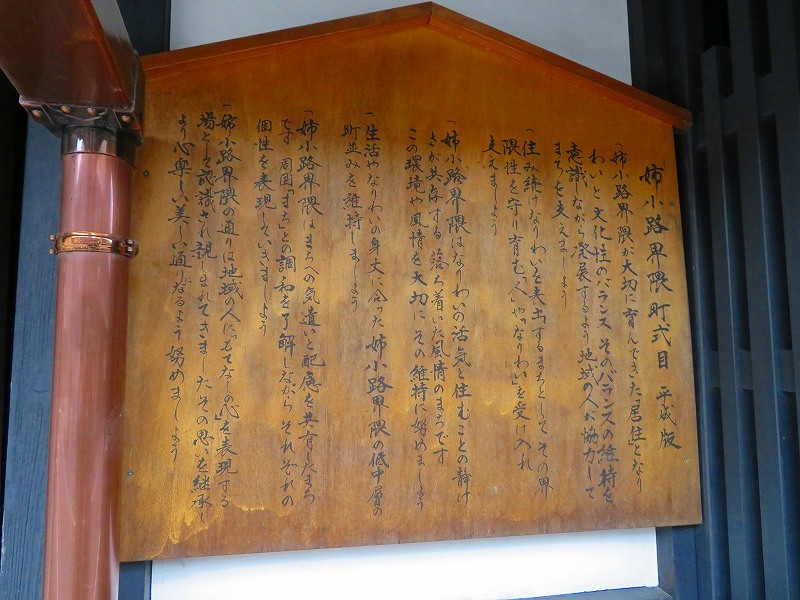 姉小路界隈町式目 平成版
一 姉小路界隈が大切に育んできた「居住」となり
わいと文化性のバランス そのバランスの維持を
意識しながら発展するよう地域の人が協力して
まちを支えましょう
一 住み続けなりわいを表出するまちとして その界
隈性を守り育む「人」や「なりわい」を受け入れ
支えましょう
一 姉小路界隈はなりわいの活気と住むことの静け
さが共存する 落ち着いた風情のまちです
この環境や風情を大切に その維持に努めましょう
一 生活やなりわいの身丈に合った 姉小路界隈の低中層の
町並みを維持しましょう
一 姉小路界隈はまちへの気遣いと配慮を共有したまち
です 周囲「まち」との調和を了解しながら それぞれの
個性を表現していきましょう
一 姉小路界隈の通りは地域の人に「もてなしの心」を表現する
場として認識され親しまれてきました その思いを継承し
より心楽しい美しい通りになるよう努めましょう